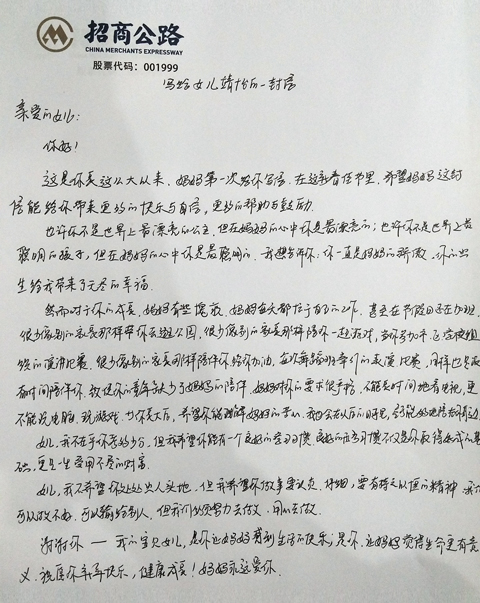 招商公路
CHINA MERCHANTS EXPRESSWAY
股票代码：001999
写给女儿靖怡的一封信
亲爱的女儿：
你好！
这是你长这么大以来，妈妈第一次给你写信。在这新春佳节里，希望妈妈这封
信能给你带来更多的快乐与自信，更多的帮助与鼓励。
也许你不是世界上最漂亮的公主，但在妈妈的心中你是最漂亮的；也许你不是世界上最
聪明的孩子，但在妈妈的心中你是最聪明的。我想告诉你：你一直是妈妈的骄傲，你的出
生给我带来了无尽的幸福。
然而对于你的成长，妈妈有些愧疚。妈妈每天都忙于自己的工作，甚至在节假日还在加班，
很少像别的家长那样带你去逛公园，很少像别的家长那样陪你一起游戏，
的演讲比赛，很少像别的家长那样陪伴你给你加油，在舞蹈班举行的表演比赛，同样也是没
有时间陪伴你，致使你的童年缺少了妈妈的陪伴。妈妈对你的要求很严格，不能长时间地看电视，更
不能玩电脑、玩游戏。当你长大后，希望你能理解妈妈的苦心。我也会在以后的日子里，尽可能的地陪在你身边
女儿，我不在乎你考多少分，但我希望你能有一个良好的学习习惯，良好的学习习惯不仅是你取得好成绩的基
础，更是一生受用不尽的财富。
女儿，我不希望你处处出人头地，但我希望你做事要认真、仔细，要有持之以恒的精神，我们
可以做不好，可以输给别人，但我们必须努力去做，用心去做。
谢谢你——我的宝贝女儿，是你让妈妈感到生活的快乐；是你，让妈妈觉得生命更有意
义。祝愿你天天快乐，健康成长！妈妈永远爱你。